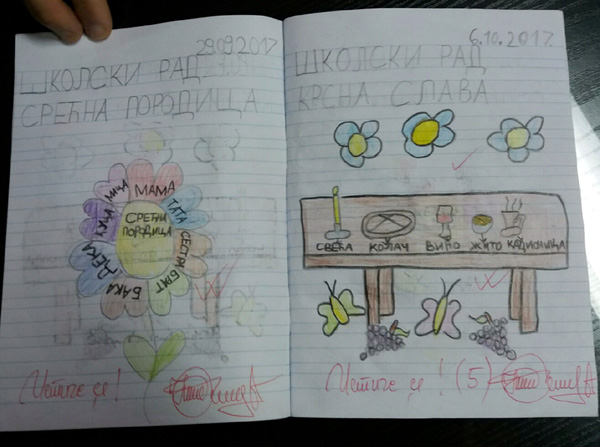 29.09.2017.
ШКОЛСКИ РАД
СРЕЋНА ПОРОДИЦА
МАМА
ТАТА
СЕСТРА
БРАТ
БАКА
ДЕКА
КУЦА
МАЦА
СРЕЋНА
ПОРОДИЦА
Истиче се!
6.10.2017.
ШКОЛСКИ РАД
КРСНА СЛАВА
СВЕЋА КОЛАЧ ВИНО ЖИТО КАДИОНИЦА
Истиче се! (5)